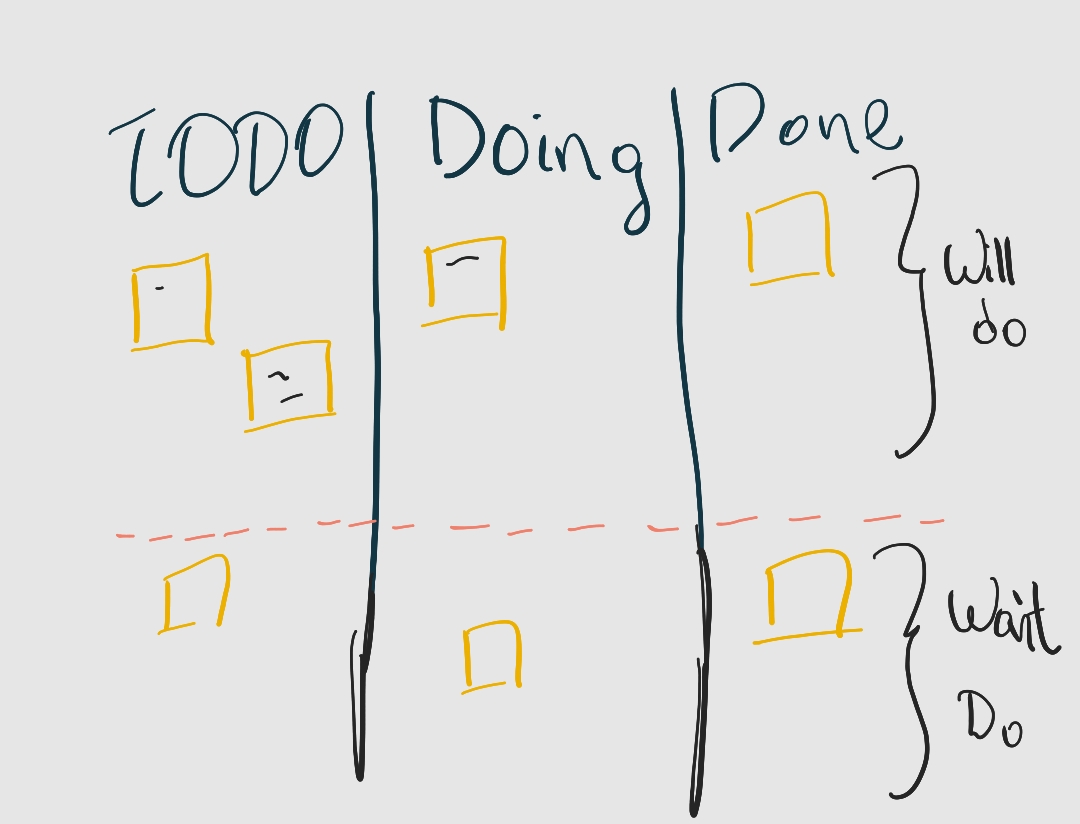 TODO
Doing
Done
Will
do
Wait
Do